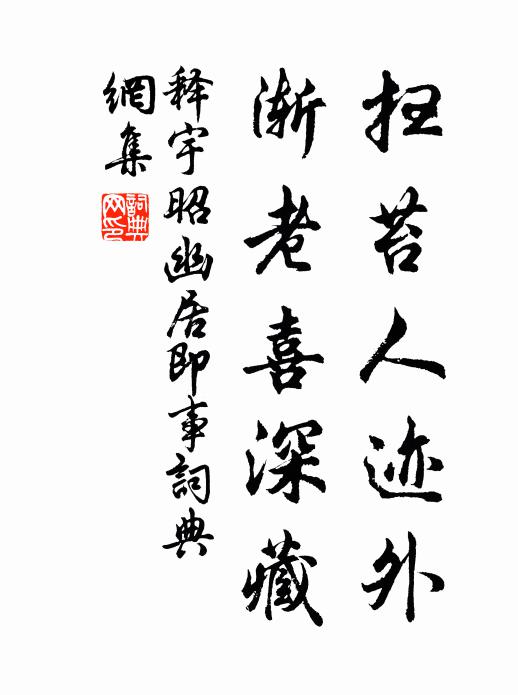 扫苔人迹外
渐老喜深藏
释宇昭幽居即事詞典
網集
詞典
网印